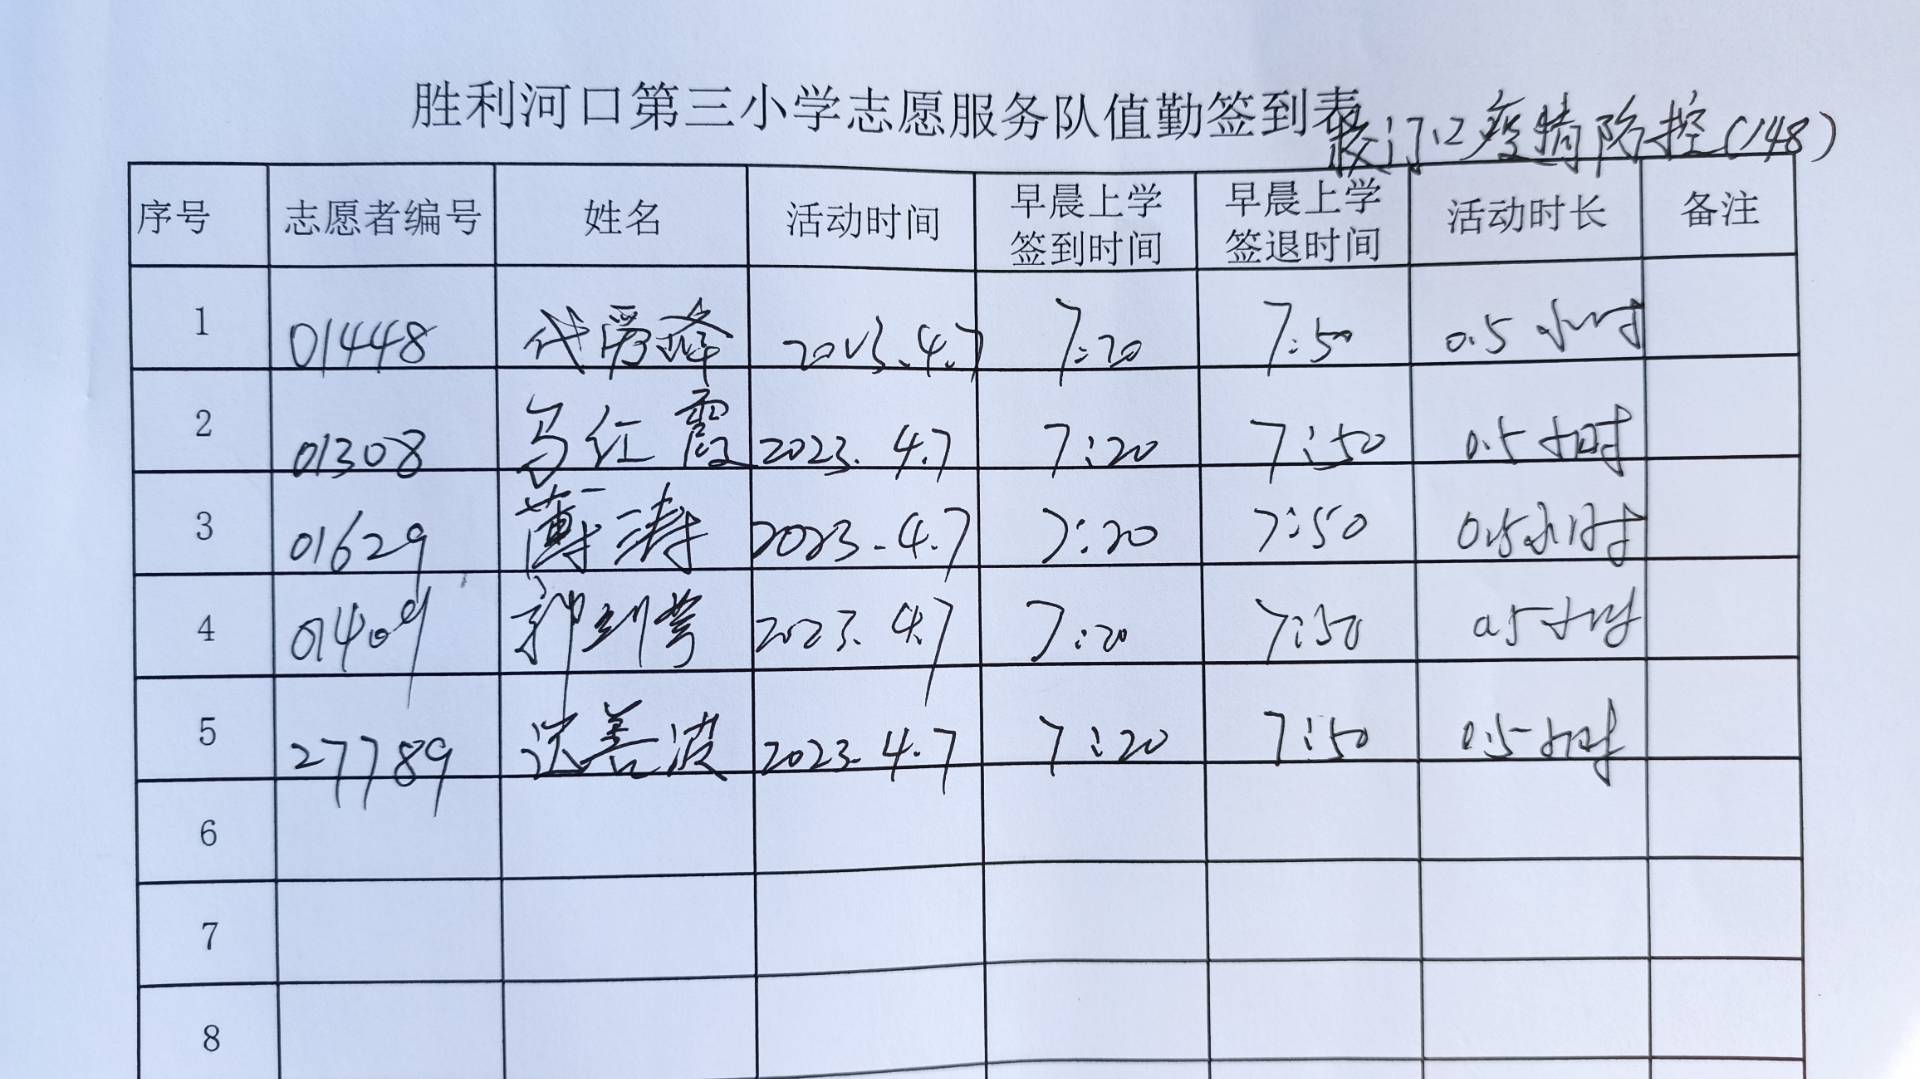 胜利河口第三小学志愿服务队值勤签到表
校门口疫情防控(148)
序号 志愿者编号 姓名 活动时间 早晨上学签到时间 早晨上学签退时间 活动时长 备注
1 01448 代爱峰 2023.4.7 7:20 7:50 0.5小时
2 01308 马红霞 2023.4.7 7:20 7:50 0.5小时
3 01629 薄涛 2023.4.7 7:20 7:50 0.5小时
4 01409 郭 2023.4.7 7:20 7:50 0.5小时
5 27789 善波 2023.4.7 7:20 7:50 0.5小时
6
7
8